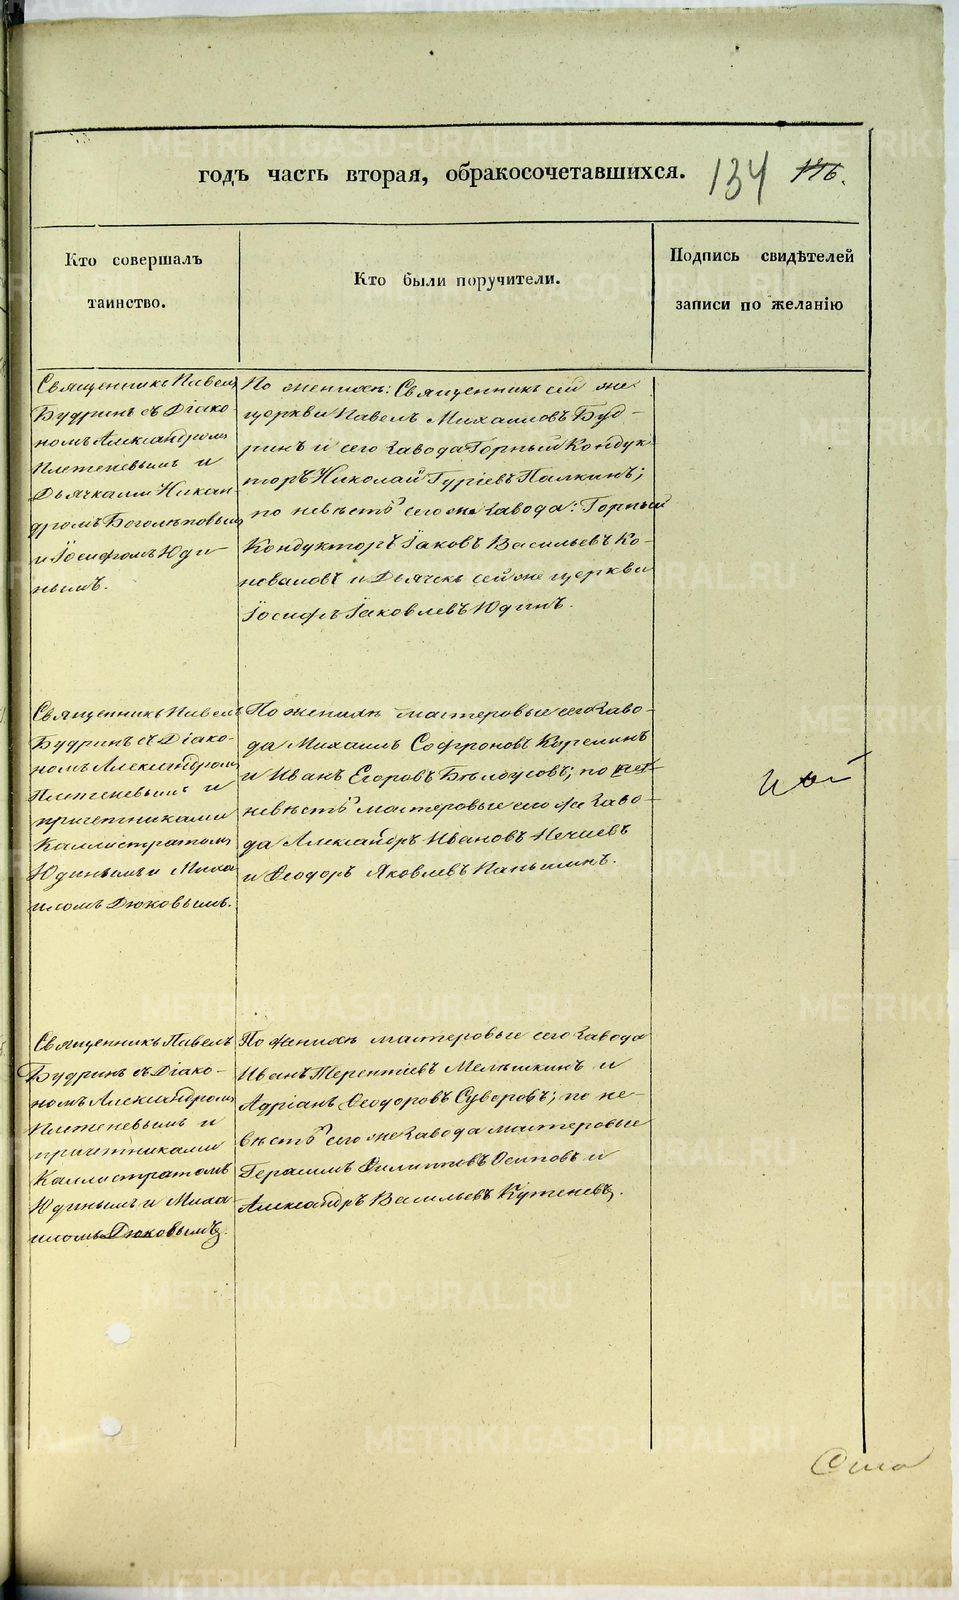 годъ часть вторая, обракосочетавшихся. 134 176.
Кто совершалъ
таинство.
Кто были поручители.
Подпись свидѣтелей
записи по желанію
Священникъ Павелъ
Будринъ съ Діако-
номъ Александромъ
Плетеневымъ и
Дьячками Никан-
дромъ Боголѣповымъ
и Іосифомъ Юди-
нымъ.
По женихѣ: Священникъ сей же
церкви Павелъ Михаиловъ Буд-
ринъ и сего Завода Горный Кондук
торъ Николай Гуріевъ Палкинъ;
по невѣстѣ сего же Завода: Горный
Кондукторъ Іаковъ Васильевъ Ко-
новаловъ и Дьячекъ сей же церкви
Іосифъ Іаковлевъ Юдинъ.
Священникъ Павелъ
Будринъ съ Діако-
номъ Александромъ
Плетеневымъ и
причетниками
Каллистратомъ
Юдинымъ и Миха
иломъ Дюковымъ.
По женихѣ мастеровые сего Заво-
да Михаилъ Софроновъ Карелинъ
и Иванъ Егоровъ Бѣлоусовъ; по
невѣстѣ мастеровые сего же Заво-
да Александръ Ивановъ Нечаевъ
и Ѳеодоръ Яковлевъ Паньшинъ.
Священникъ Павелъ
Будринъ съ Діако-
номъ Александромъ
Плетеневымъ и
причетниками
Каллистратомъ
Юдинымъ и Миха-
иломъ Дюковымъ.
По женихѣ мастеровые сего Завода
Иванъ Терентіевъ Мелышкинъ и
Адріанъ Ѳеодоровъ Суворовъ; по не-
вѣстѣ сего же Завода мастеровые
Герасимъ Филипповъ Осиповъ и
Александръ Васильевъ Кутеневъ.
METRIKI.GASO-URAL.RU